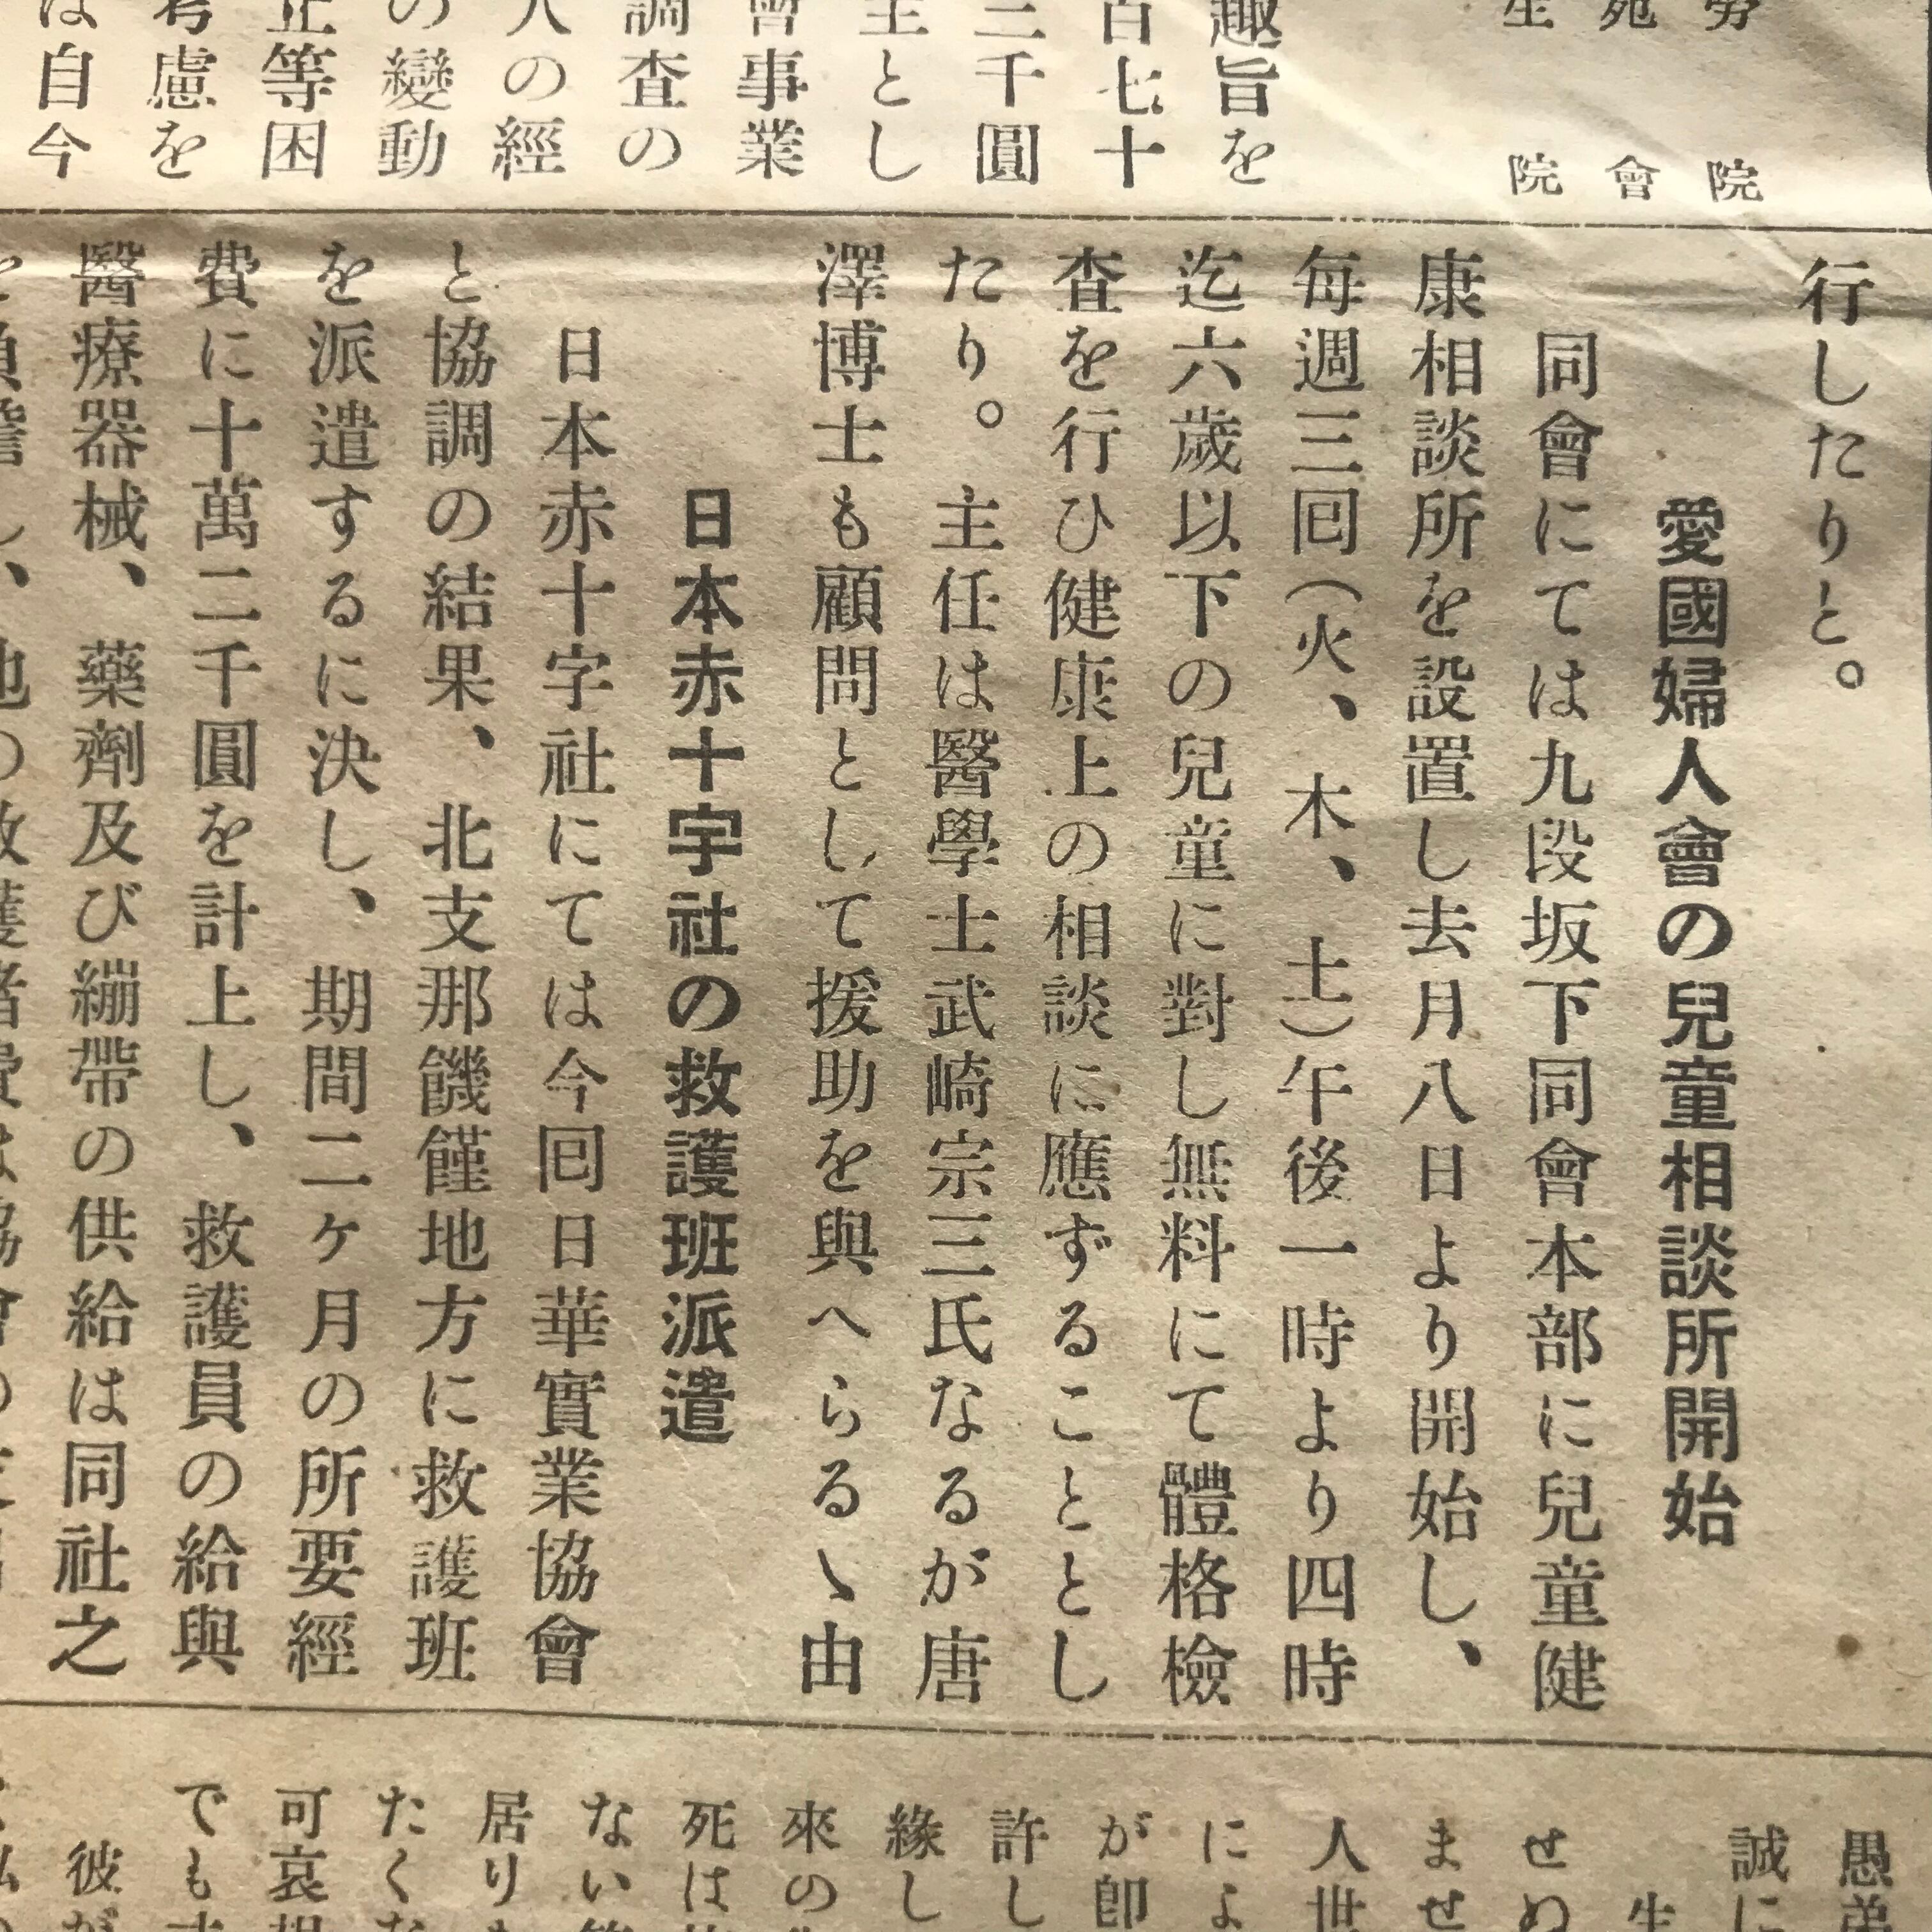 趣旨を
百七十
二千圓
主とし
會事業
調査の
人の經
の變動
正等困
考慮を
は自今
院
會
院
行したりと。
愛國婦人會の兒童相談所開始
同會にては九段坂下同會本部に兒童健
康相談所を設置し去月八日より開始し、
每週三囘（火、木、土）午後一時より四時
迄六歲以下の兒童に對し無料にて體格檢
査を行ひ健康上の相談に應ずることとし
たり。主任は醫學士武崎宗三氏なるが唐
澤博士も顧問として援助を與へらるゝ由
日本赤十字社の救護班派遣
日本赤十字社にては今囘日華實業協會
と協調の結果、北支那饑饉地方に救護班
を派遣するに決し、期間二ヶ月の所要經
費に十萬二千圓を計上し、救護員の給與
醫療器械、藥劑及び繃帶の供給は同社之
愚弟
誠に
生
せぬ
ませ
人世
によ
が卽
許し
緣し
來の
死は
ない
居り
たくな
可哀
でも
彼が